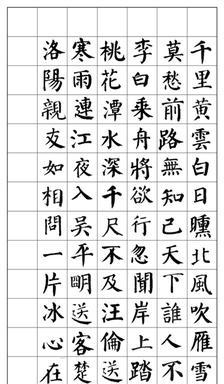 千里黄雲白日曛北風吹雁雪
莫愁前路無知己天下誰人不
李白乘舟將欲行忽聞岸上踏
桃花潭水深千尺不及汪倫送
寒雨連江夜入吳平明送客楚
洛陽親友如相問一片冰心在